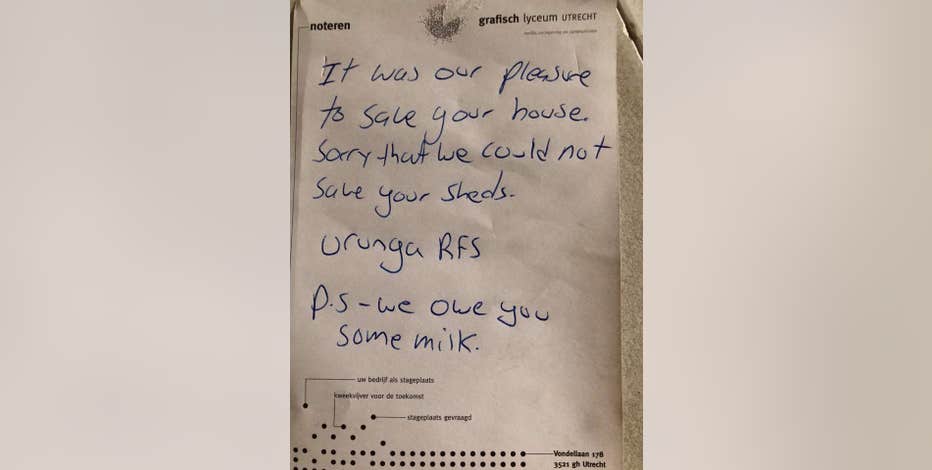 noteren
grafisch lyceum UTRECHT
It was our pleasure
to save your house.
Sorry that we could not
save your sheds.
Urunga RFS
P.S - we owe you
some milk.
uw bedrijf als stageplaats
kweekvijver voor de toekomst
stageplaats gevraagd
Vondellaan 178
3521 gh Utrecht